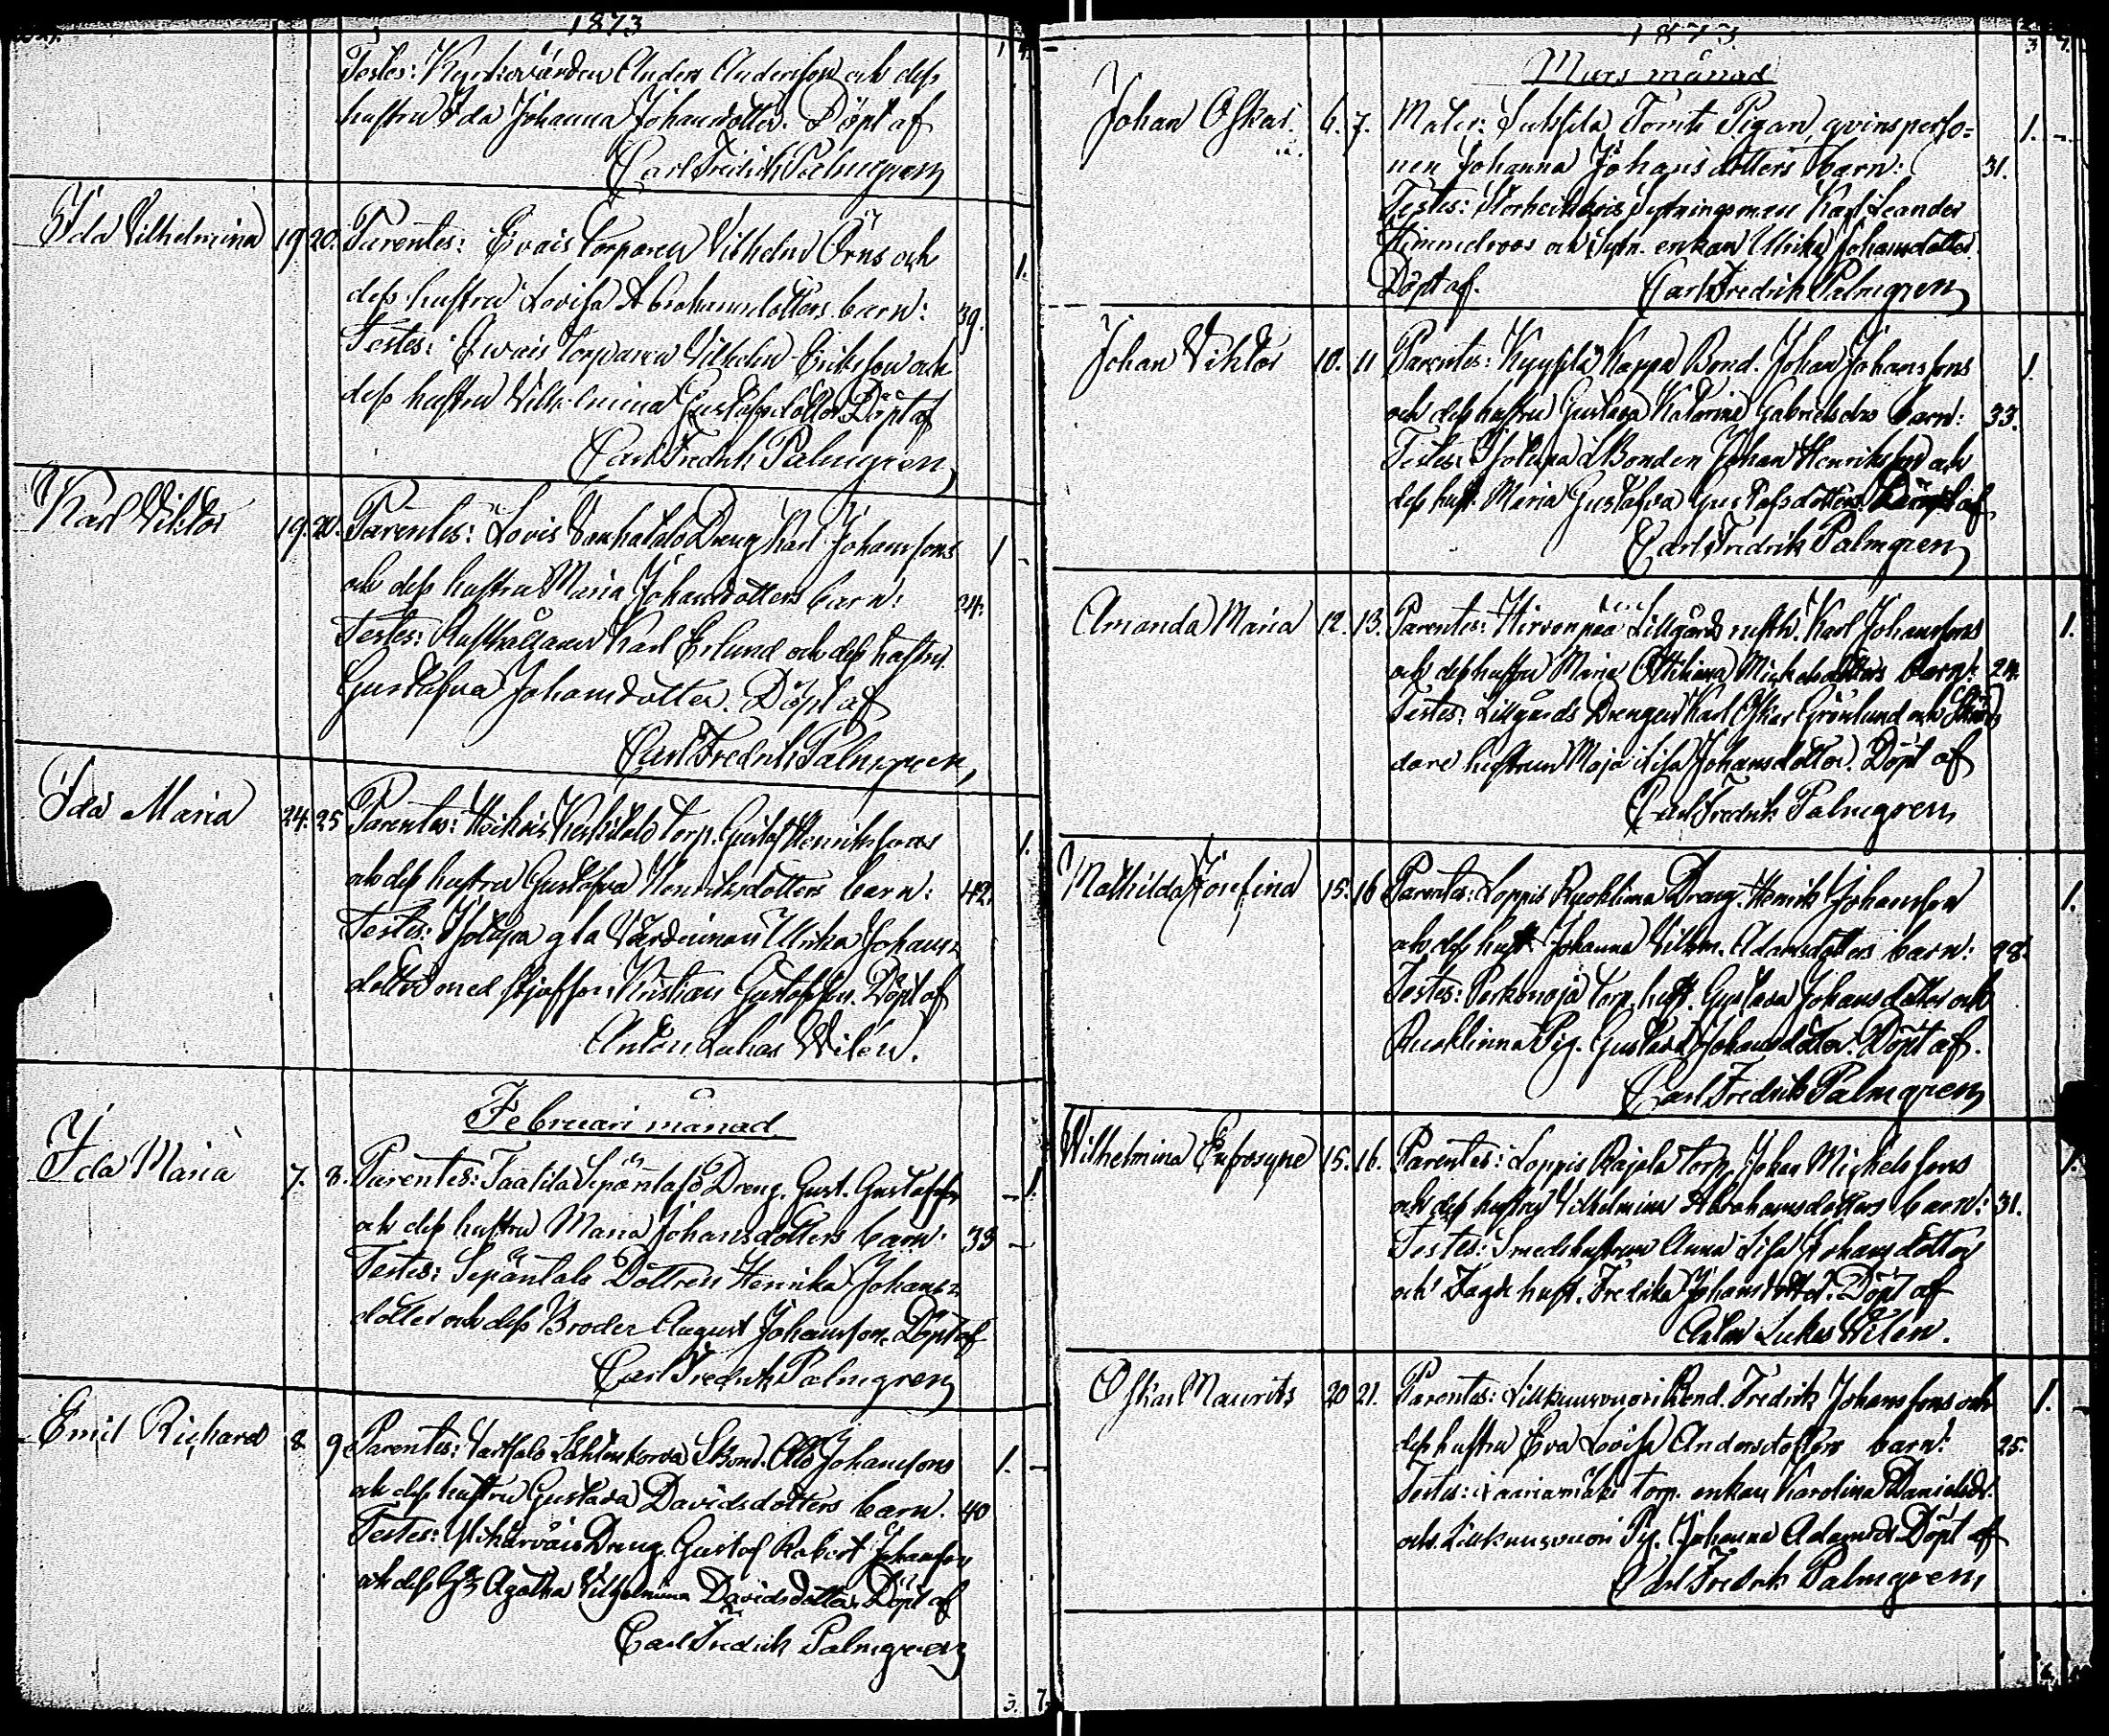 1873
Testes: Kyrkovärden Anders Andersson och dess
hustru Ida Johanna Johansdotter. Döpt af
Carl Fredrik Palmgren
Ida Vilhelmina 19 20. Parentes: Torparen Vilhelm Örns och 1.
dess hustru Lovisa Abrahamsdotters barn: 39.
Testes: Torparen Vilhelm Eriksson och
dess hustru Vilhelmina Gustafsdotter Döpt af
Carl Fredrik Palmgren
Karl Viktor 19. 20. Parentes: Lovis Vanhatalo Dreng Karl Johanssons 1 -
och dess hustru Maria Johansdotters barn: 24.
Testes: Rusthållaren Karl Erlund och dess hustru
Gustafva Johansdotter. Döpt af
Carl Fredrik Palmgren
Ida Maria 24. 25 Parentes: Heikois Keskitalo torp. Gustaf Henrikssons 1.
och dess hustru Gustafva Henriksdotters barn: 42.
Testes: gla Värdinnan Ulrika Johans=
dotter med Kristian Gustafsson. Döpt af
Anton Lukas Wilén.
Februari månad
Ida Maria 7. 8. Parentes: Taatila Sepäntalo Dreng. Gust. Gustafss - 1.
och dess hustru Maria Johansdotters barn. 33 -
Testes: Sepäntalo Dottren Henrika Johans=
dotter och dess Broder August Johansson. Döpt af
Carl Fredrik Palmgren
Emil Richard 8. 9. Parentes: Lähteenkorva Bond. Otto Johanssons 1. -
och dess hustru Gustava Davidsdotters barn. 40
Testes: Dreng. Gustaf Robert Johansson
och dess Agatha Vilhelmina Davidsdotter Döpt af
Carl Fredrik Palmgren
3. 7.
1873
3 7.
Mars månad
Johan Oskar. 6. 7. Mater: Tomts Pigan qvinsperso= 1. -
nen Johanna Johansdotters barn: 31.
Testes: Sytningsman Karl Leander
Himmelroos och Sytn. enkan Ulrika Johansdotter.
Döpt af. Carl Fredrik Palmgren
Johan Viktor 10. 11 Parentes: Karpa Bond. Johan Johanssons 1.
och dess hustru Gustava Katarina Gabrielsdrs barn: 33.
Testes: Bonden Johan Henriksson och
dess hust. Maria Gustafva Gustafsdotter. Döpt af
Carl Fredrik Palmgren
Amanda Maria 12. 13. Parentes: Hirvonpää Lillgårds rusth. Karl Johanssons 1.
och dess hustru Maria Ottiliana Mickelsdotters barn: 24.
Testes: Lillgårds Drengen Karl Oskar Grönlund och
dare hustrun Maja Lisa Johansdotter. Döpt af
Carl Fredrik Palmgren
Mathilda Josefina 15. 16 Parentes: Loppis Ruoklinna Dreng. Henrik Johansson 1.
och dess hust. Johanna Vilhm. Adamsdotters barn: 28.
Testes: Perkonoja Torp. hust. Gustava Johansdotter och
Ruoklinna Pig. Gustava Johansdotter. Döpt af.
Carl Fredrik Palmgren
Wilhelmina Eufrosyne 15. 16. Parentes: Loppis Rajala torp. Johan Mickelssons 1.
och dess hustru Vilhelmina Abrahamsdotters barn: 31.
Testes: Smedshustrun Anna Lisa Johansdotter
och hust. Fredrika Johansdotter. Döpt af
Anton Lukas Wilén.
Oskar Maurits 20 21. Parentes: Liukunvuori Bond. Fredrik Johanssons och 1. -
dess hustru Eva Lovisa Andersdotters barn: 25.
Testes: torp. enkan Karolina Danielsdr.
och Liukunvuori Pig. Johanna Adamsdr. Döpt af
Carl Fredrik Palmgren